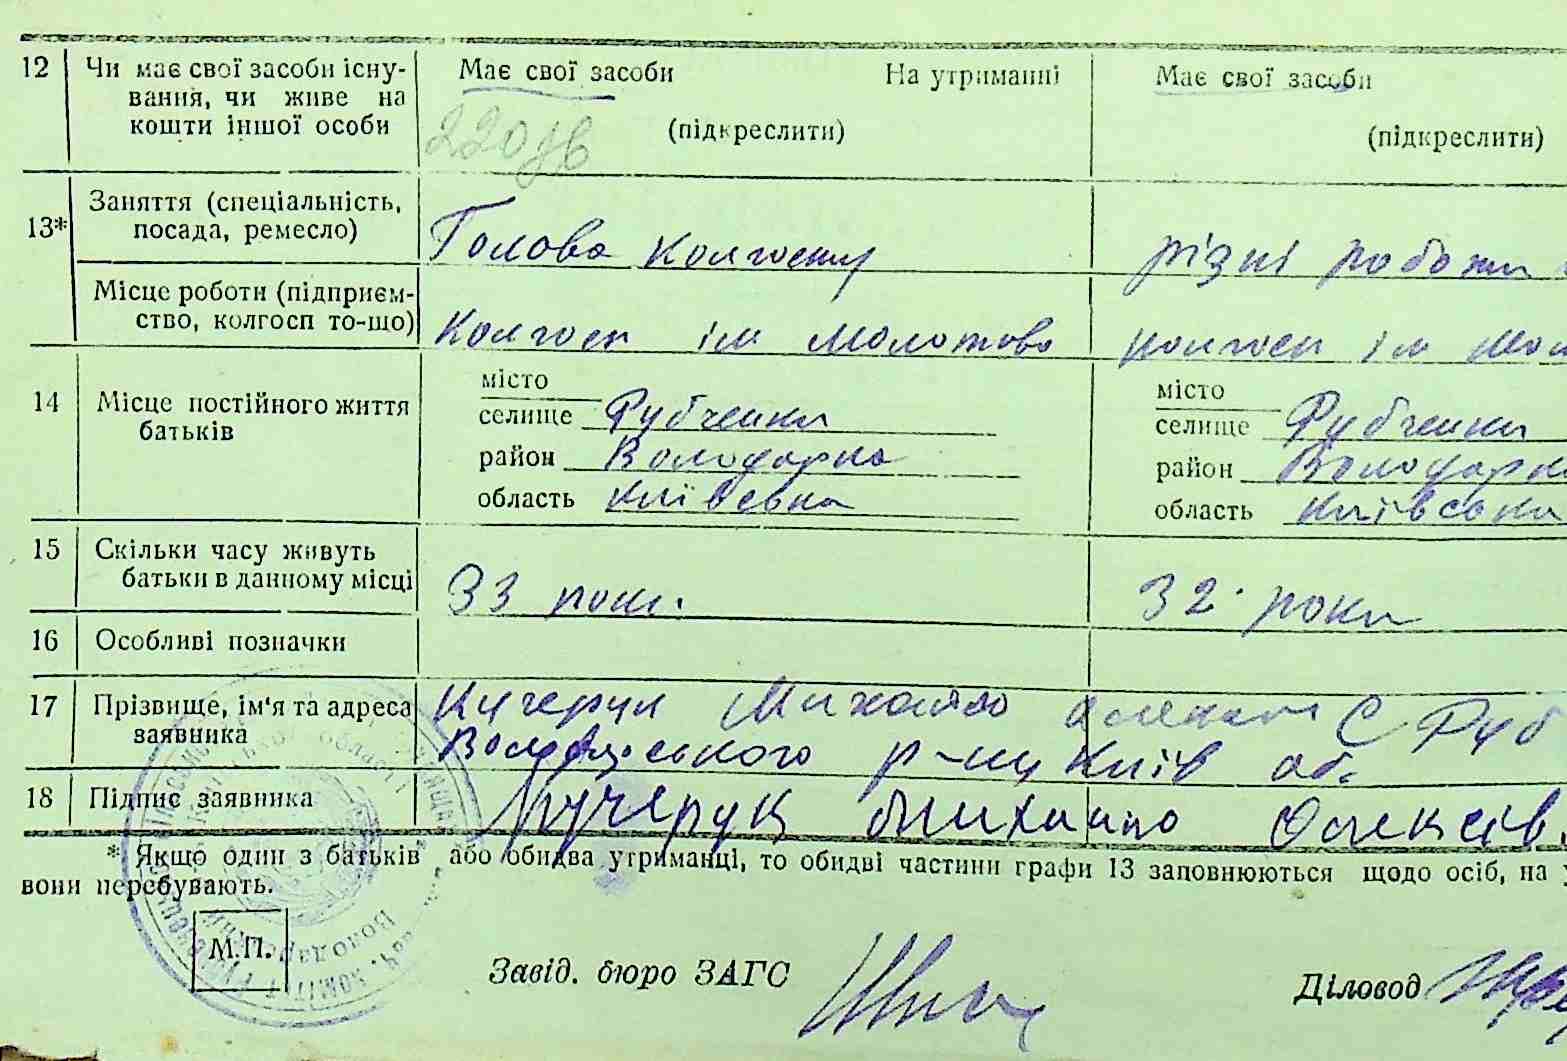 12 Чи має свої засоби існу- Має свої засоби На утриманні Має свої засоби
вання, чи живе на 220 (підкреслити) (підкреслити)
кошти іншої особи
Заняття (спеціальність,
13* посада, ремесло) Голова колгоспу різні роботи
Місце роботи (підприєм-
ство, колгосп то-що) Колгосп ім Молотова колгосп ім Мол
місто місто
14 Місце постійного життя селище Рубченки селище Рубченки
батьків район Володарка район Володарка
область Київська область Київська
15 Скільки часу живуть
батьки в данному місці 33 роки. 32 роки
16 Особливі позначки
17 Прізвище, ім'я та адреса Кучерук Михайло С Руб
заявника р-ну Київ об.
18 Підпис заявника Кучерук Михайло Олексієв
* Якщо один з батьків або обидва утриманці, то обидві частини графи 13 заповнюються щодо осіб, на у
вони перебувають.
М.П. Завід. бюро ЗАГС Діловод